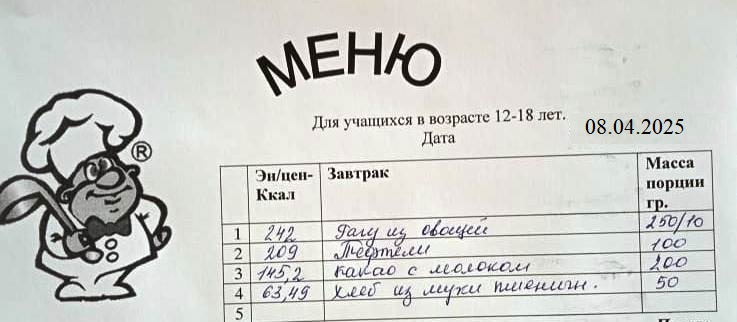 МЕНЮ
®
Для учащихся в возрасте 12-18 лет.
Дата 08.04.2025
Эн/цен- Ккал Завтрак Масса порции гр.
1 242 Рагу из овощей 250/10
2 209 Тефтели 100
3 145,2 какао с молоком 200
4 63,49 хлеб из муки пшеничн. 50
5